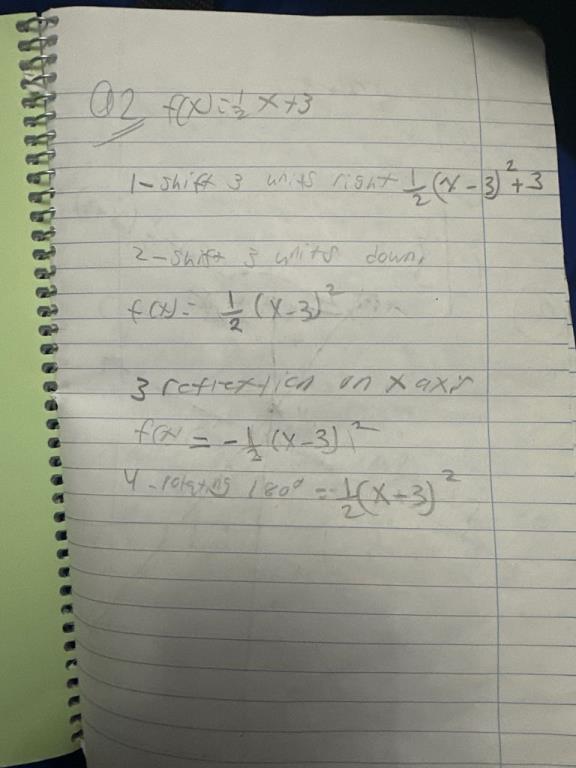 Q2 f(x)=½x+3
1- shift 3 units right ½(x-3)²+3
2- shift 3 units down,
f(x)= ½(x-3)²
3 reflextion on x axis
f(x = -½(x-3)²
4-rotating 180° = ½(x-3)²